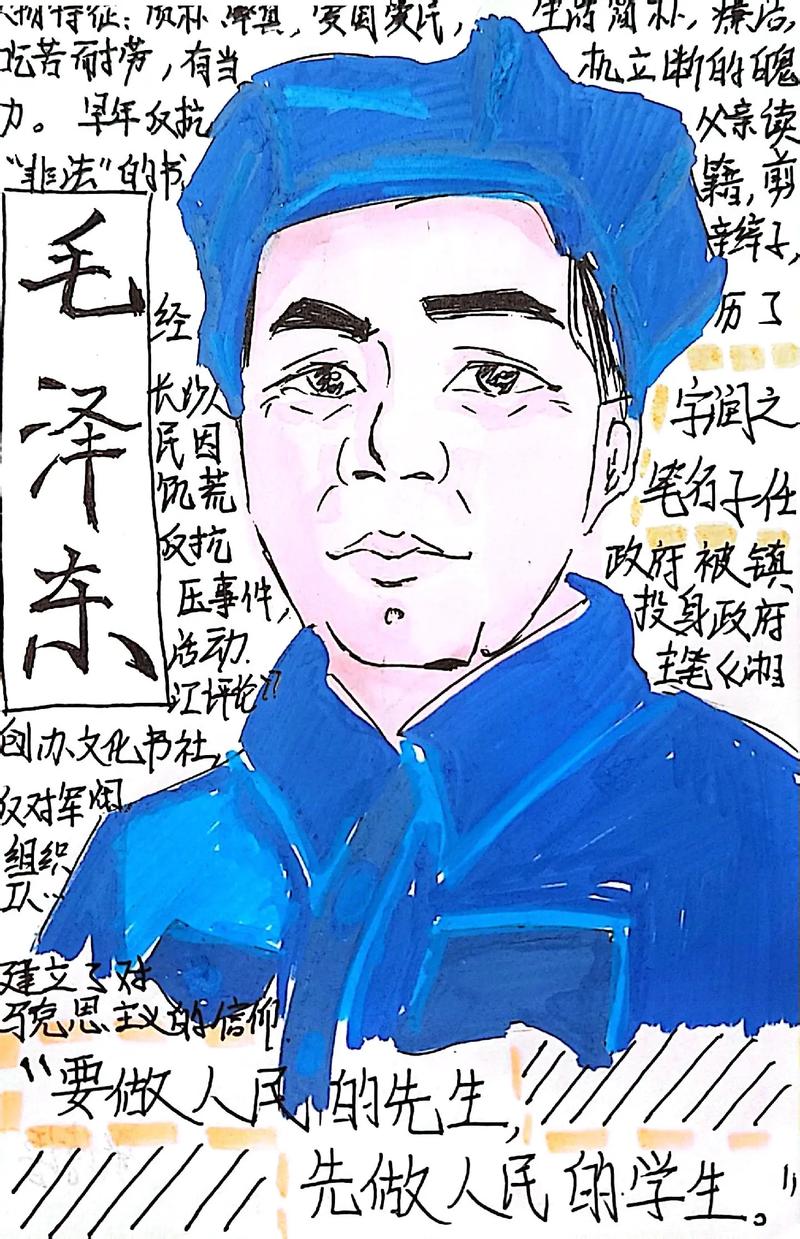 人物特征：质朴 率真，爱国爱民，生活简朴，廉洁，
吃苦耐劳，有当机立断的魄
力。早年反抗父亲读
“非法”的书籍，剪
辫子，
毛泽东
经历了
字润之
笔名子任
长沙人
民因
饥荒
反抗
政府被镇
压事件，
投身政府
活动.
主笔《湘
江评论”
创办文化书社，
反对军阀
组织
工人…
建立了对
马克思主义的信仰
“要做人民的先生，
先做人民的学生。”